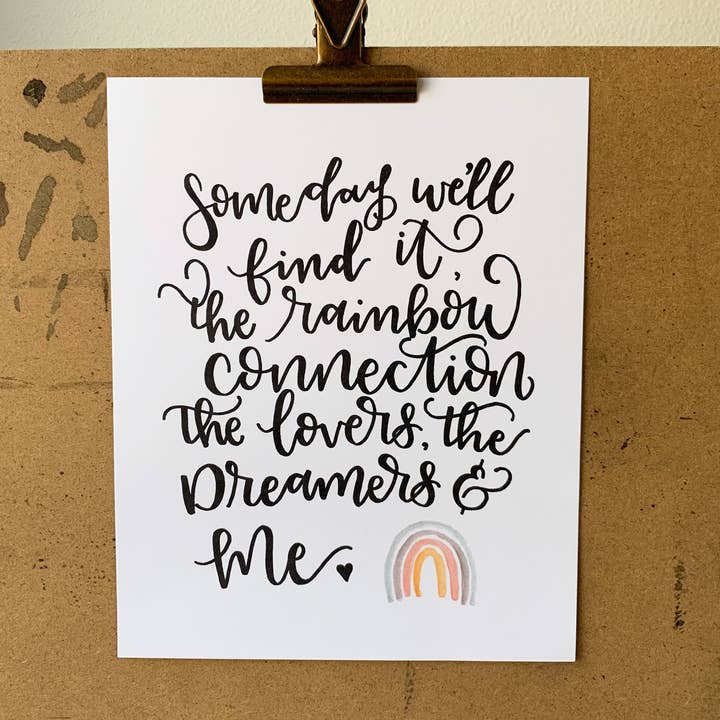 Someday we'll
find it,
the rainbow
connection
the lovers, the
Dreamers &
Me